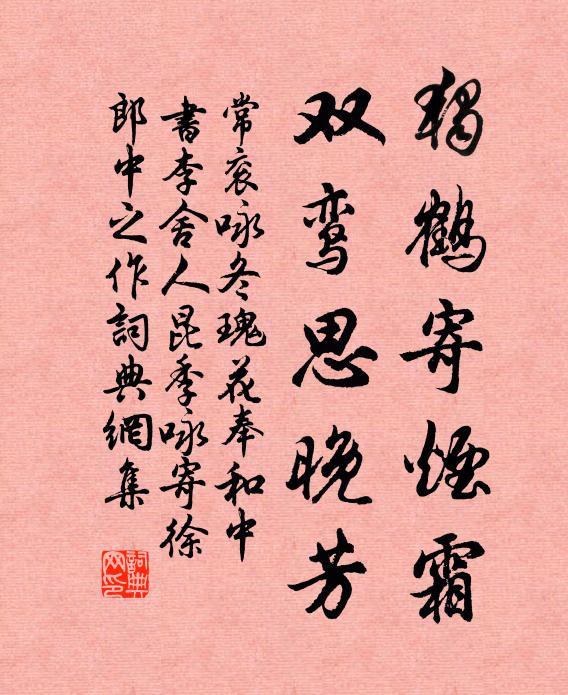 独鹤寄煙霜
双鸾思晚芳
常衮咏冬瑰花奉和中
書李舍人昆季咏寄徐
郎中之作詞典網集
詞典网印